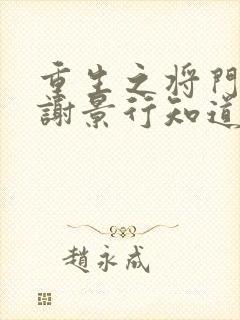 重生之将門
謝景行知道
趙永成